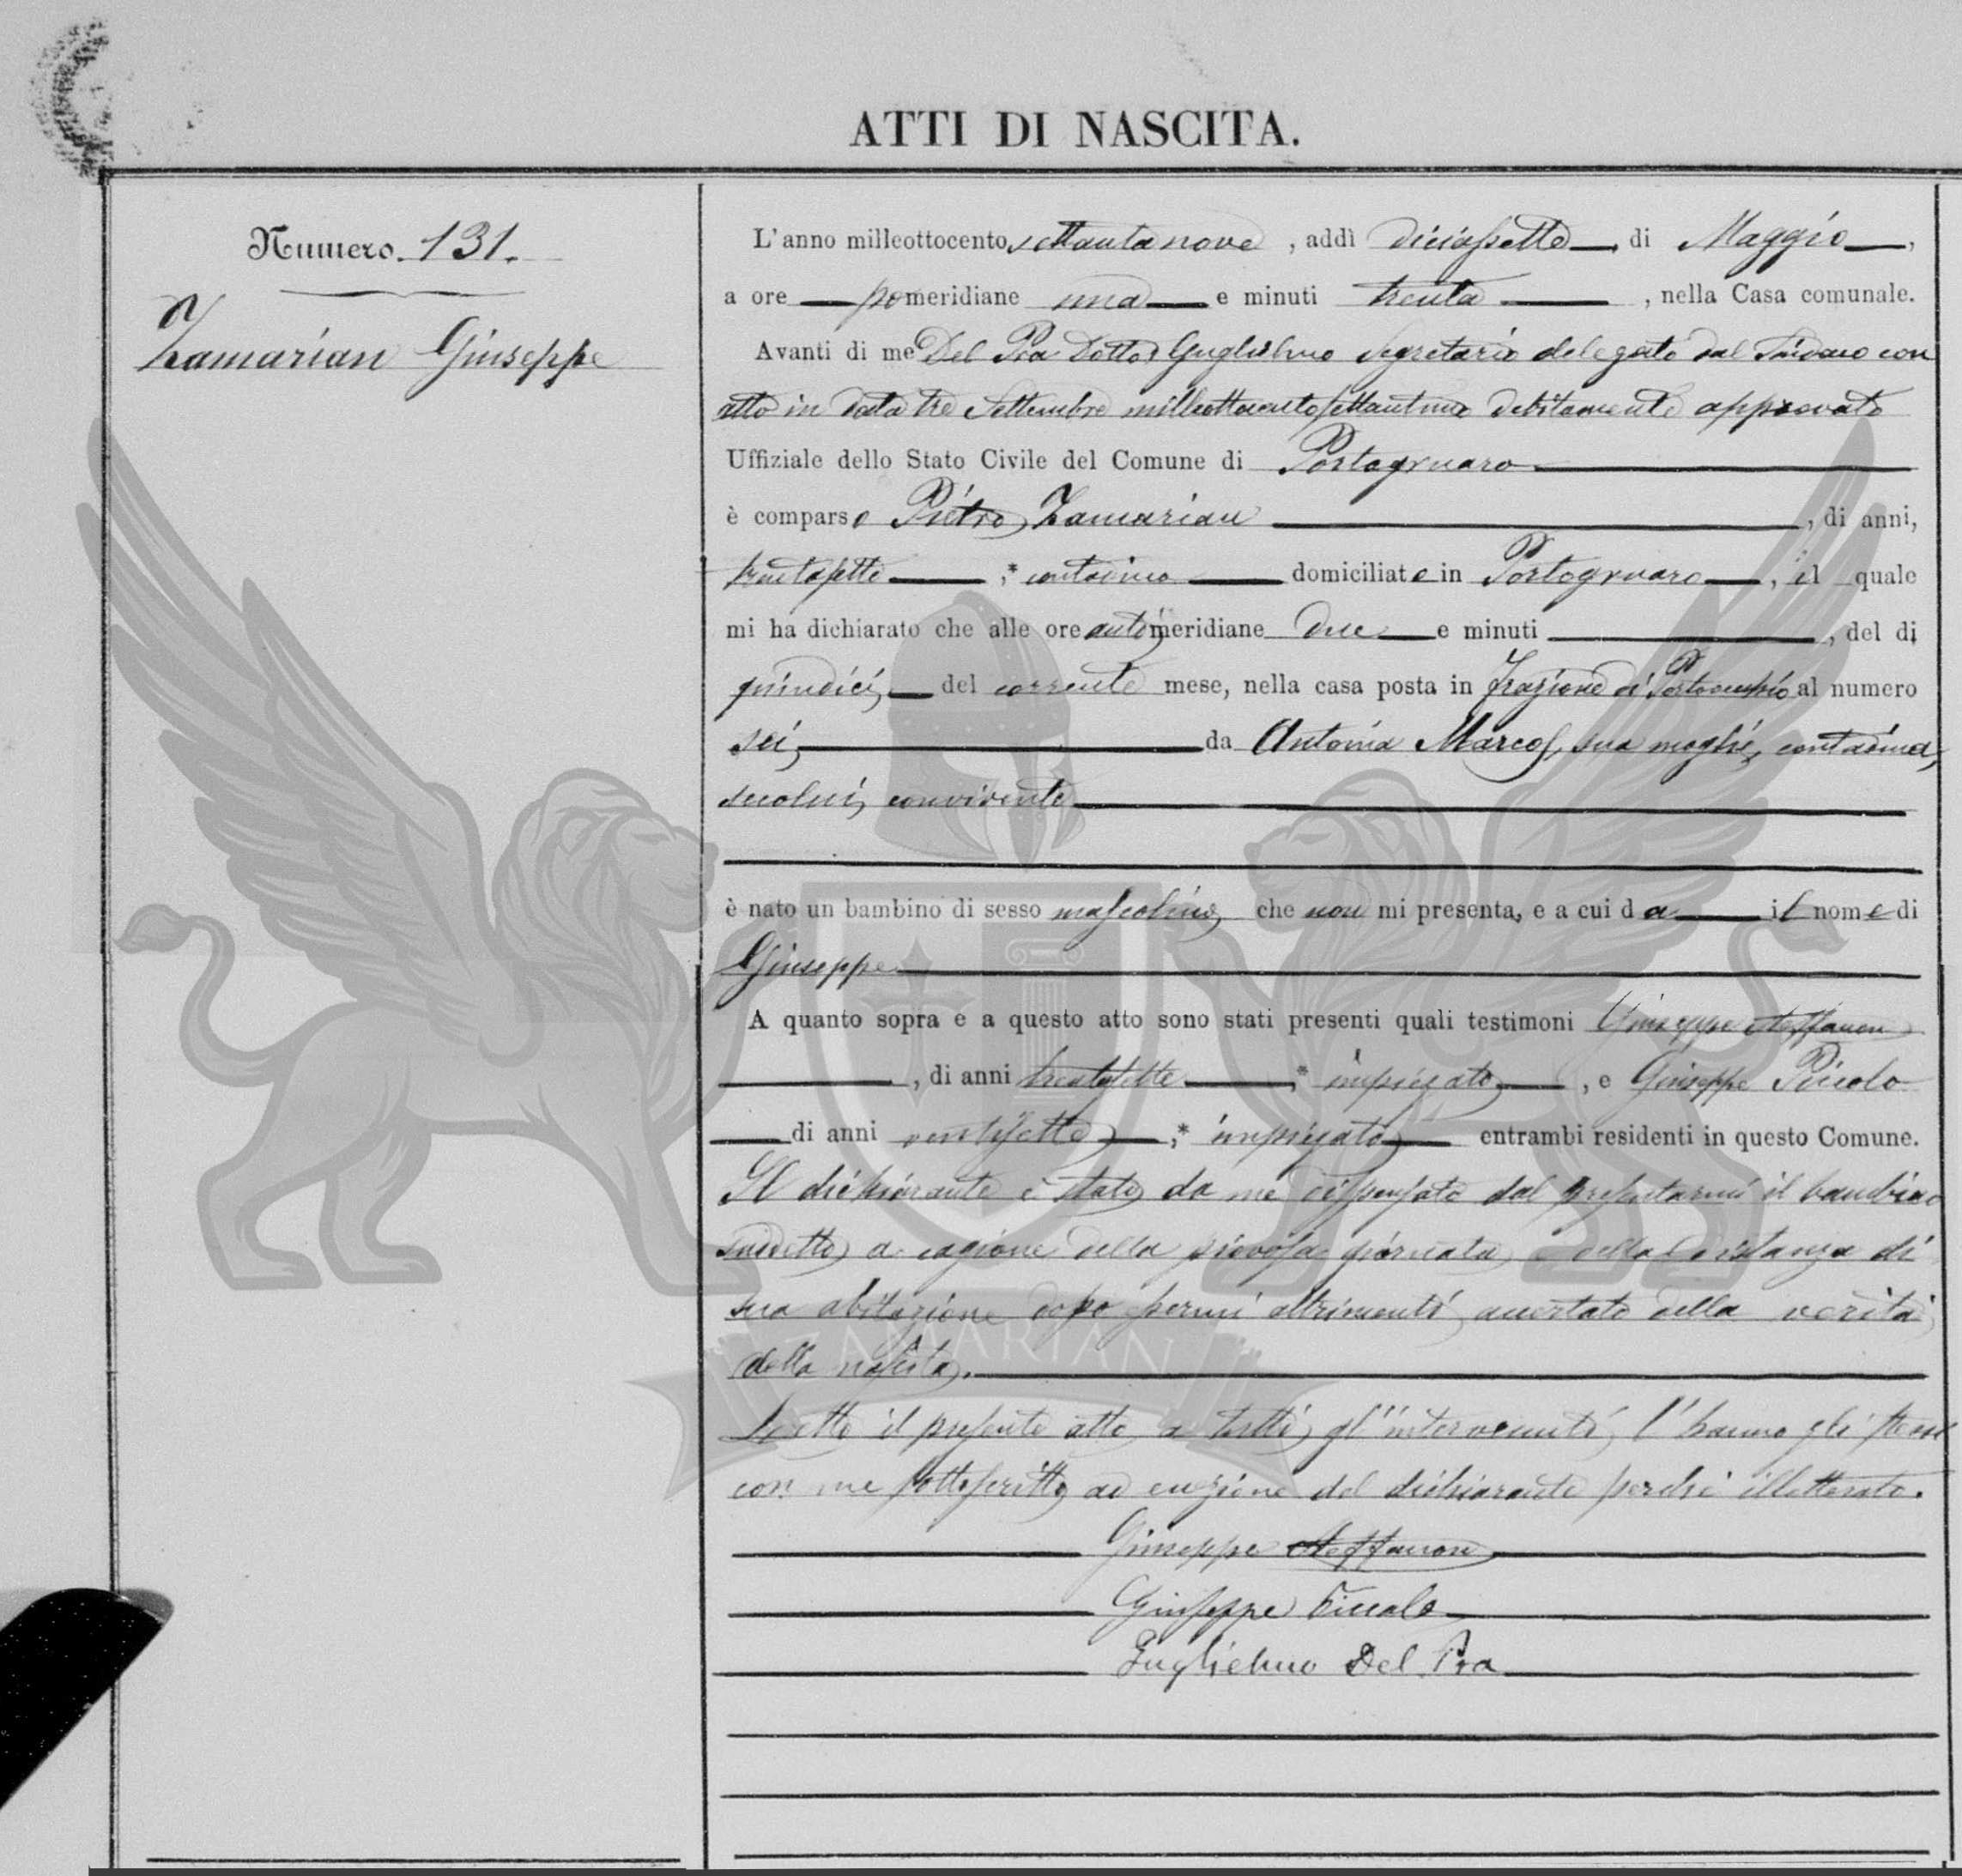 ATTI DI NASCITA.
Numero. 131.
Zamarian Giuseppe
L'anno milleottocento settantanove, addì diciassette di Maggio,
a ore pomeridiane una e minuti trenta, nella Casa comunale.
Avanti di me Del Pra Dottor Guglielmo Segretario delegato dal Sindaco con
atto in data tre Settembre milleottocentosettantuno debitamente approvato
Uffiziale dello Stato Civile del Comune di Portogruaro
è comparso Pietro Zamarian, di anni,
trentasette,* contadino domiciliato in Portogruaro, il quale
mi ha dichiarato che alle ore antimeridiane due e minuti, del dì
quindici, del corrente mese, nella casa posta in frazione di Portovecchio al numero
sei, da Antonia Marcos, sua moglie, contadina,
secolui convivente
è nato un bambino di sesso mascolino, che non mi presenta, e a cui da il nome di
Giuseppe
A quanto sopra e a questo atto sono stati presenti quali testimoni Giuseppe Steffanon
, di anni trentasette,* impiegato, e Giuseppe Piccolo
di anni ventisette,* impiegato entrambi residenti in questo Comune.
Il dichiarante è stato da me dispensato dal presentarmi il bambino
suddetto a cagione della piovosa giornata e della distanza di
sua abitazione dopo essermi altrimenti accertato della verità
della nascita.
Letto il presente atto a tutti gl'intervenuti, l'hanno gli stessi
con me sottoscritto ad eccezione del dichiarante perchè illetterato.
Giuseppe Steffanon
Giuseppe Piccolo
Guglielmo Del Pra
AMARIAN